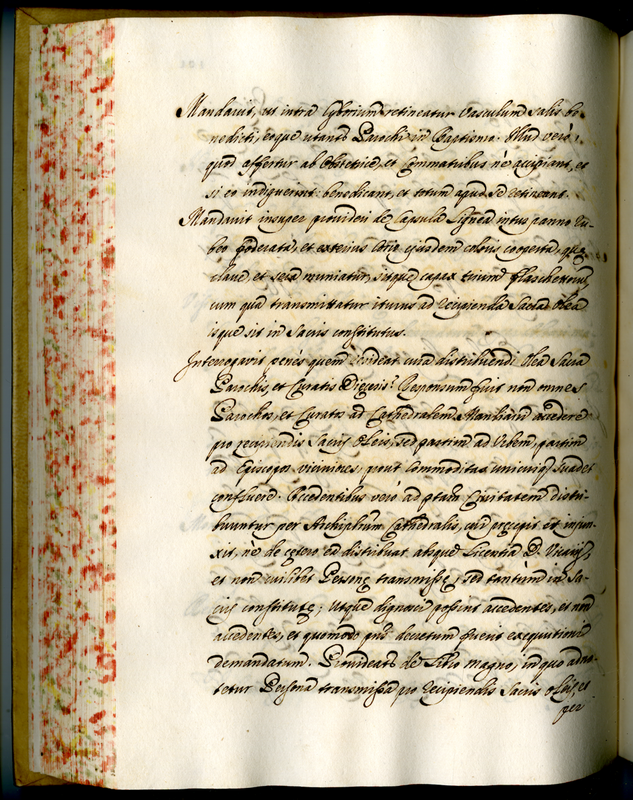 Mandavit, ut intra Cyborium retineatur Vasculum salis be-
nedicti, eoque utantur Parochi in Baptismo. Illud verò,
quod affertur ab Obstetrice, et Commatribus nè accipiant, et
si eo indiguerint benedicant, et totum apud se retineant.
Mandavit insuper provideri de Capsula lignea intus panno Ru-
beo foderata, et exterius Corio eiusdem coloris cooperta, quæ
clave, et sera muniatur, sitque capax trium flaschettorum
cum qua transmittatur iturus ad recipienda Sacra Olea
isque sit in Sacris constitutus.
Interrogavit penès quem resideat cura distribuendi Olea Sacra
Parochis, et Curatis Diæcesis? Responsum fuit non omnes
Parochos, et Curatos ad Cathedralem Manliam accedere
pro recipiendis Sacris Oleis, sed partim ad Urbem, partim
ad Episcopos viciniores, prout Commoditas unicuiq suadet
confluere. Accedentibus verò ad ptam Civitatem distri-
buuntur per Archipbrum Cathedralis, cui præcepit et injun-
xit, nè de cetero ea distribuat absque Licentia D. Vicarij,
et non cuilibet Personæ transmissæ, sed tantum in Sa-
cris constitutæ; Utque dignosci possint accedentes, et non
accedentes, et quomodo pns decretum fuerit exequutioni
demandatum. Provideatr de Libro magno, in quo adno-
tetur Persona transmissa pro recipiendis Sacris Oleis, et
per